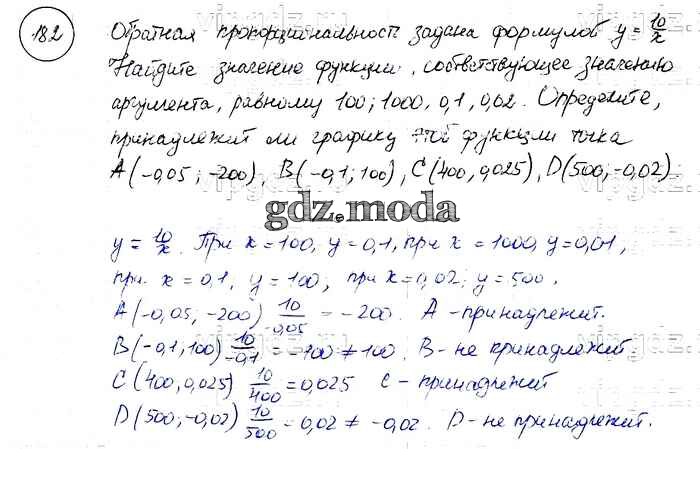 182
Обратная пропорциональность задана формулой y = 10/x
Найдите значение функции, соответствующее значению
аргумента, равному 100; 1000, 0,1, 0,02. Определите,
принадлежит ли графику этой функции точка
A(-0,05; -200), B(-0,1; 100), C(400, 0,025), D(500, -0,02).
gdz.moda
y = 10/x. При x = 100, y = 0,1, при x = 1000, y = 0,01,
при x = 0,1, y = 100, при x = 0,02; y = 500.
A(-0,05; -200) 10/-0,05 = -200. A - принадлежит.
B(-0,1, 100) 10/-0,1 = -100 ≠ 100. B - не принадлежит.
C(400, 0,025) 10/400 = 0,025 C - принадлежит
D(500, -0,02) 10/500 = 0,02 ≠ -0,02. D - не принадлежит.